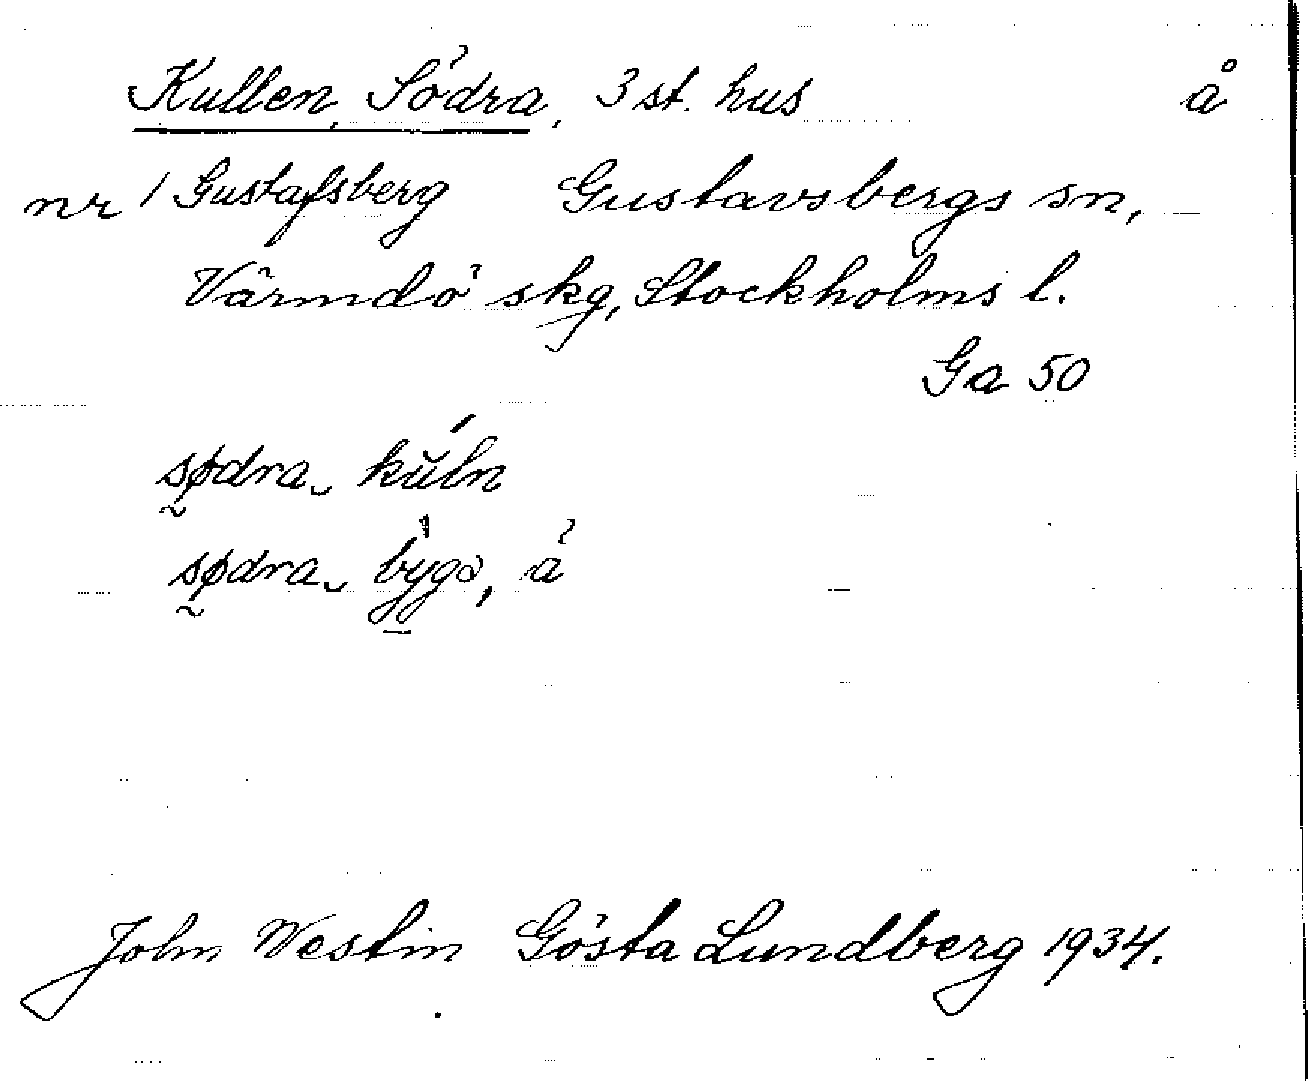 Kullen, Södra, 3 st. hus å
nr 1 Gustafsberg Gustavsbergs sn,
Värmdö skg, Stockholms l.
Ga 50
sødra kuln
sødra
John Westin Gösta Lundberg 1934.